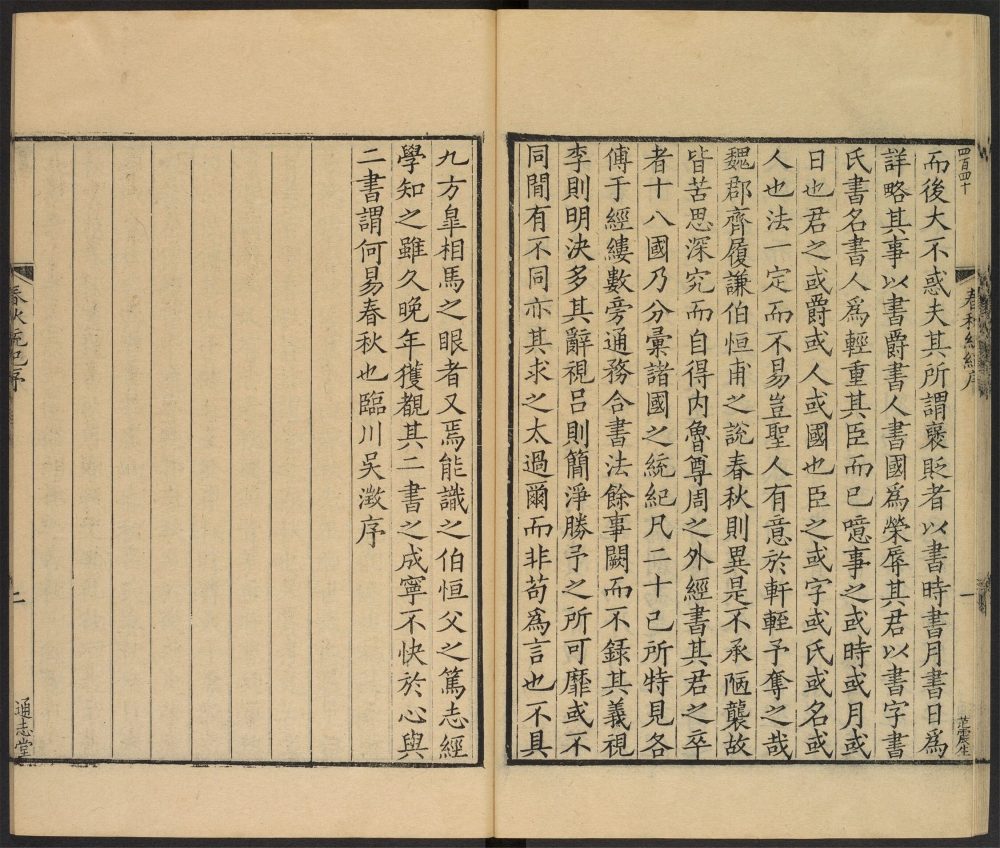 四百四十
春秋統紀序
一
范震生
而後大不惑夫其所謂襃貶者以書時書月書日爲
詳略其事以書爵書人書國爲榮辱其君以書字書
氏書名書人爲輕重其臣而已噫事之或時或月或
日也君之或爵或人或國也臣之或字或氏或名或
人也法一定而不易豈聖人有意於軒輊予奪之哉
魏郡齊履謙伯恒甫之說春秋則異是不承陋襲故
皆苦思深究而自得内魯尊周之外經書其君之卒
者十八國乃分彙諸國之統紀凡二十己所特見各
傅于經縷數旁通務合書法餘事闕而不錄其義視
李則明決多其辭視呂則簡淨勝予之所可靡或不
同閒有不同亦其求之太過爾而非苟爲言也不具
九方皐相馬之眼者又焉能識之伯恒父之篤志經
學知之雖久晚年獲覩其二書之成寧不快於心與
二書謂何易春秋也臨川吳澂序
春秋統紀序
二
通志堂